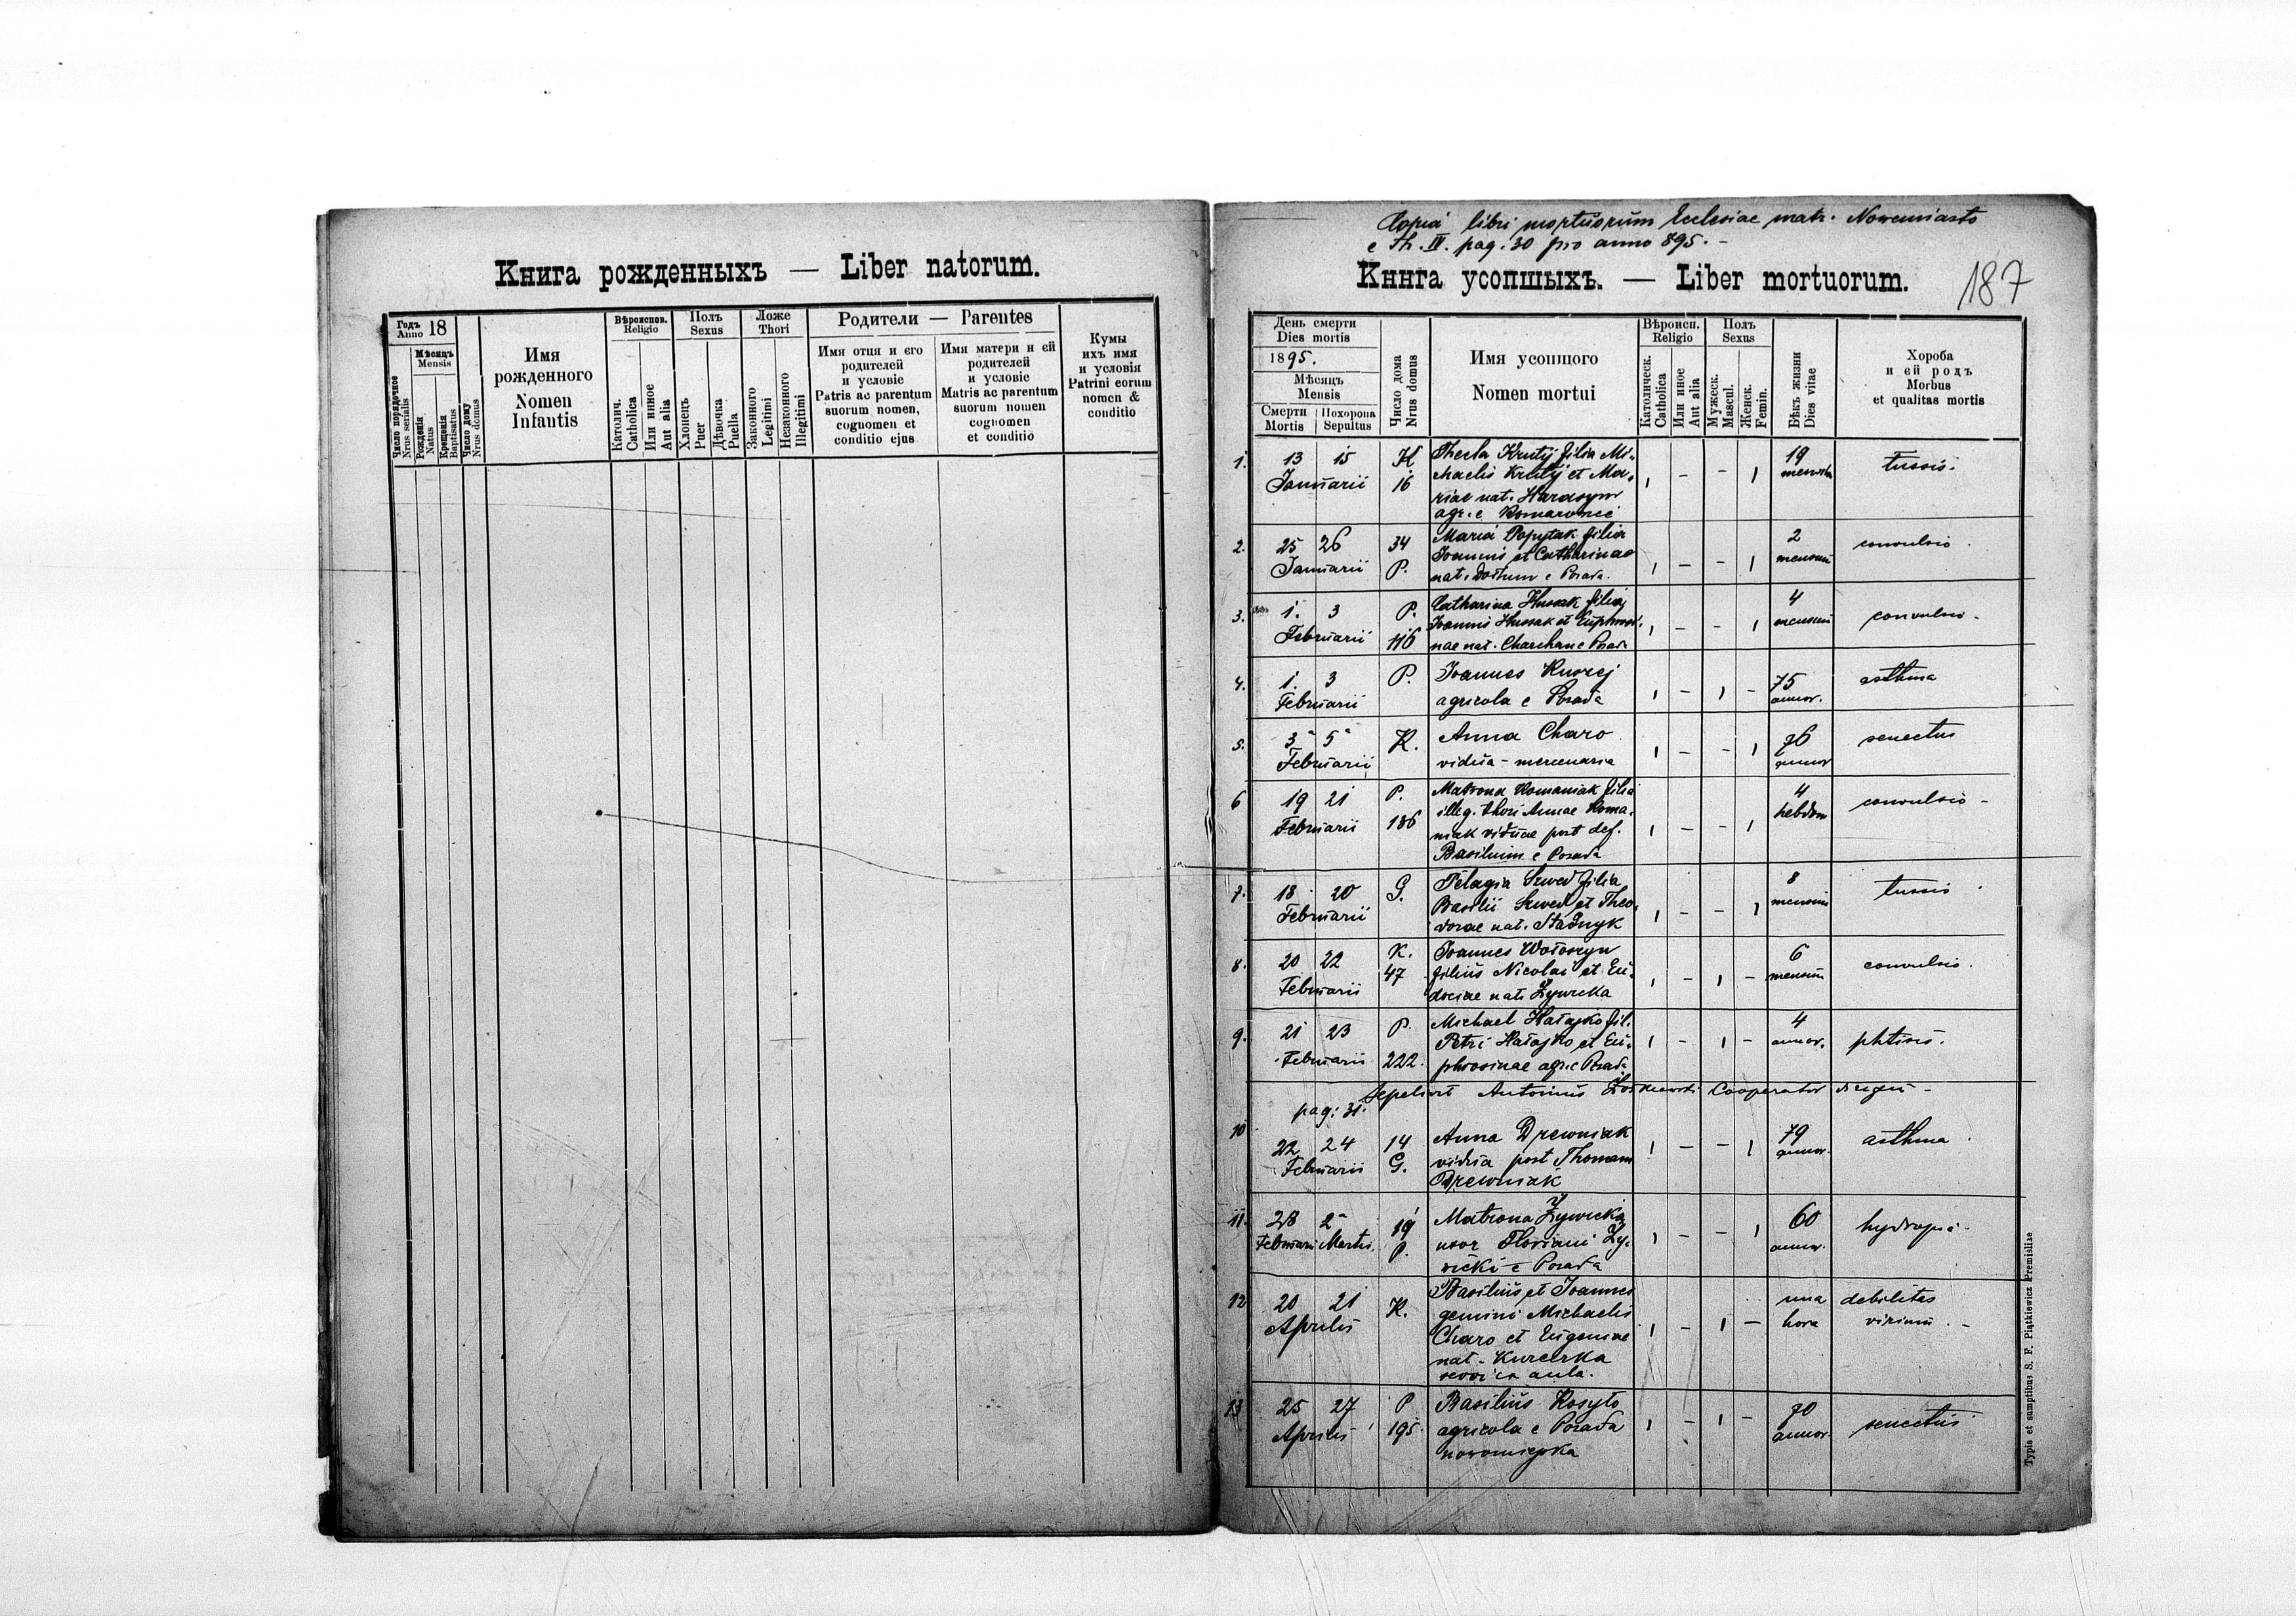 Книга рожденныхъ — Liber natorum.
Годъ
Anno 18
Мѣсяцъ
Mensis
Число порядочное
Nrus serialis
Рожденія
Natus
Крещенія
Baptisatus
Число дому
Nrus domus
Имя
рожденного
Nomen
Infantis
Вѣроиспов.
Religio
Католич.
Catholica
Или инное
Aut alia
Полъ
Sexus
Хлопецъ
Puer
Дѣвочка
Puella
Ложе
Thori
Законного
Legitimi
Незаконного
Illegitimi
Родители — Parentes
Имя отця и его
родителей
и условіе
Patris ac parentum
suorum nomen,
cognomen et
conditio ejus
Имя матери и ей
родителей
и условіе
Matris ac parentum
suorum nomen
cognomen
et conditio
Кумы
ихъ имя
и условія
Patrini eorum
nomen &
conditio
Copia libri mortuorum Ecclesiae matr. Nowemiasto
e Th. IV. pag. 30 pro anno 895. -
Книга усопшыхъ. — Liber mortuorum.
187
День смерти
Dies mortis
1895.
Мѣсяцъ
Mensis
Смерти
Mortis
Похорона
Sepultus
Число дома
Nrus domus
Имя усопшого
Nomen mortui
Вѣроисп.
Religio
Католическ.
Catholica
Или иное
Aut alia
Полъ
Sexus
Мужеск.
Mascul.
Женск.
Femin.
Вѣкъ жизни
Dies vitae
Хороба
и ей родъ
Morbus
et qualitas mortis
1. 13 15 K Thecla Krutÿ filia Mi- 19 tussis.
Januarii 16 chaelis Krutÿ et Ma- 1 - - 1 mensium
riae nat. Harasym
agr. e Komarowice
2. 25 26 34 Maria Popytak filia 2 convulsio.
Januarii P. Joannis et Catharinae 1 - - 1 mensium
nat. e Posada.
3. 1. 3 P. Catharina Hussak filia 4 convulsio.
Februarii 116 Joannis Hussak et Euphrosi- 1 - - 1 mensium
nae nat. e Posada
4. 1. 3 P. Joannes 75 asthma
Februarii agricola e Posada 1 - 1 - annor.
5. 3 5 K. Anna Charo 76 senectus
Februarii vidua - mercenaria 1 - - 1 annor
6 19 21 P. Matrona Romaniak filia 4 convulsio -
Februarii 186 illeg. thori Annae Roma- 1 - - 1 hebdom
niak viduae post def.
Basilium e Posada
7. 18 20 G. Pelagia Szwed filia 8 tussis
Februarii Basilii Szwed et Theo- 1 - - 1 mensium
dorae nat. Stadnyk
8. 20 22 K. Joannes Wołoszyn 6 convulsio.
Februarii 47 filius Nicolai et Eu- 1 - 1 - mensium
dociae nat. Żywicka
9. 21 23 P. Michael Hałajko fil. 4 phtisis.
Februarii 222. Petri Hałajko et Eu- 1 - 1 - annor.
phrosinae agr. e Posada
Sepelivit Antonius Cooperator
pag: 31.
10 22 24 14 Anna Drewniak 79 asthma.
Februarii G. vidua post Thomam 1 - - 1 annor.
Drewniak
11. 28 2 19 Matrona Żywicka 60 hydropsi-
Februarii Martii P. uxor Floriani Ży- 1 - - 1 annor.
wicki e Posada
12 20 21 K. Basilius et Joannes una debilitas
Aprilis gemini Michaelis 1 - 1 - hora virium. -
Charo et Eugeniae
nat. Kurcerka
aula.
13 25 27 P Basilius Kosyło 70 senectus
Aprilis 195 agricola e Posada 1 - 1 - annor.
nowomiejska
Typis et sumptibus S. F. Piątkiewicz Premisliae